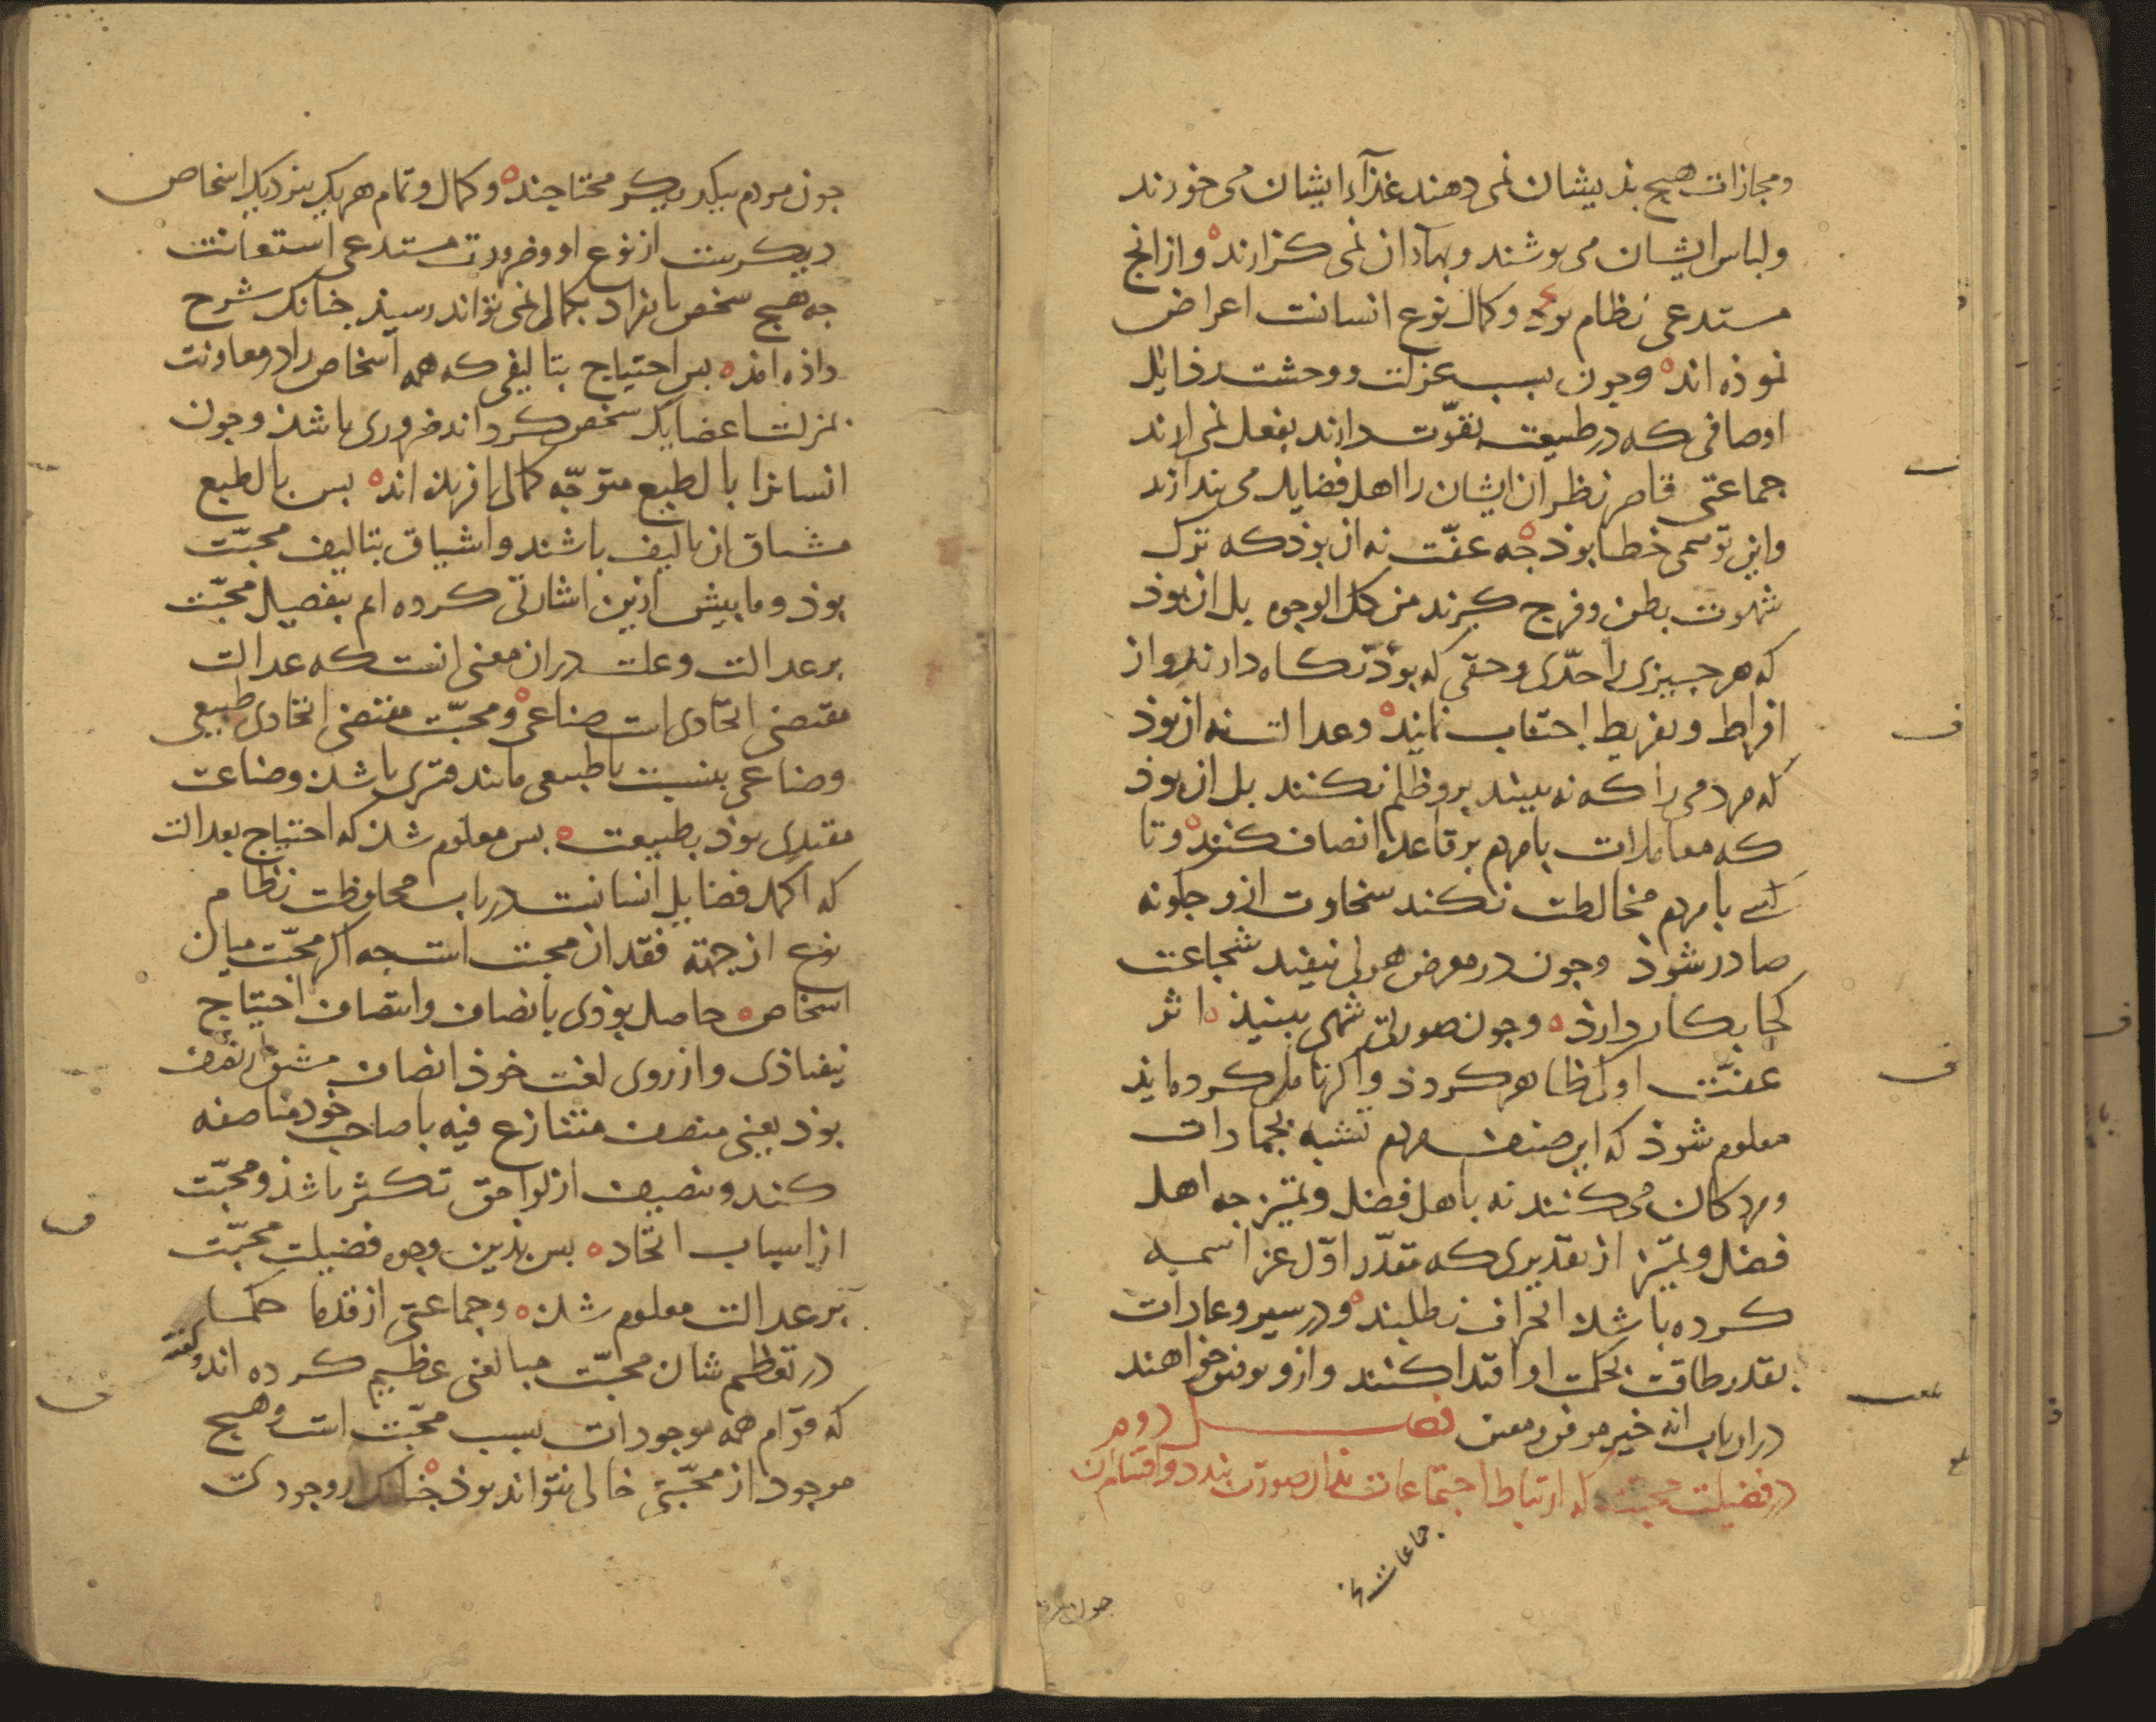 ومجازات هیچ بذیشان نمی دهند غذآء ایشان می خورند
ولباس ایشان می پوشند وبهآء ان نمی کزارند وازانج
مستدعی نظام بوذ وکمال نوع انسانست اعراض
نموذه اند وجون بسبب عزلت ووحشت رذایل
اوصافی که در طبیعت بقوّت دارند بفعل نمی ارند
جماعتی قاصر نظران ایشان را اهل فضایل می بندارند
واین توهمی خطا بوذ جه عفّت نه ان بوذ که ترک
شهوت بطن وفرج کیرند من کل الوجوه بل ان بوذ
که هر جیزی را حدّی وحقی که بوذ نکاه دارند واز
افراط وتفریط اجتناب نمایند وعدالت نه ان بوذ
که مردمی را که نه بینند برو ظلم نکنند بل ان بوذ
که معاملات با مردم بر قاعدۀ انصاف کنند وتا
کسی با مردم مخالطت نکند سخاوت ازو جکونه
صادر شوذ وجون در معرض هولی نیفتد شجاعت
کجا بکار دارذ وجون صورتی شهی نبیند اثر
عفّت او کی ظاهر کردد واکر تامل کرده ایذ
معلوم شوذ که این صنف مردم تشبه بجمادات
ومردکان می کنند نه باهل فضل وتمییز جه اهل
فضل وتمییز از تقدیری که مقدّر اوّل عزّ اسمه
کرده باشد انحراف نطلبند ودر سیر وعادات
بقدر طاقت بحکمت او اقتدا کنند وازو توفیق خواهند
دران باب انه خیر موفق ومعین فصل دوم
در فضیلت محبت که ارتباط اجتماعات بذان صورت بندد واقسام ان
جماعات نخ
جون مردم
جون مردم بیکدیکر محتاجند وکمال وتمام هریک بنزدیک اشخاص
دیکرست از نوع او وضرورت مستدعی استعانت
جه هیج شخص بانفراد بکمال نمی تواند رسید جنانک شرح
داده اند بس احتیاج بتالیفی که همه اشخاص را در معاونت
بمنزلت اعضای یک شخص کرداند ضروری باشد وجون
انسانرا بالطبع متوجّه کمال افریده اند بس بالطبع
مشتاق ان تالیف باشند واشتیاق بتالیف محبّت
بوذ وما بیش ازین اشارتی کرده ایم بتفضیل محبّت
بر عدالت وعلت دران معنی انست که عدالت
مقتضی اتّحادی است صناعی ومحبّت مقتضی اتّحادی طبیعی
وصناعی بنسبت با طبیعی مانند قسری باشد وصناعت
مقتدی بوذ بطبیعت بس معلوم شد که احتیاج بعدالت
که اکمل فضایل انسانیست در باب محافظت نظام
نوع از جهة فقدان محبت است جه اکر محبّت میان
اشخاص حاصل بوذی بانصاف وانتصاف احتیاج
نیفتاذی واز روی لغت خوذ انصاف مشتق از نصف
بوذ یعنی منصف متنازع فیه با صاحب خود مناصفه
کند وتنصیف از لواحق تکثر باشذ ومحبّت
از اسباب اتّحاد بس بذین وجوه فضیلت محبّت
بر عدالت معلوم شد وجماعتی از قدما حکما
در تعظیم شان محبّت مبالغتی عظیم کرده اند وکفته
که قوام همه موجودات بسبب محبّت است وهیج
موجود از محبّتی خالی نتواند بوذ جنانک از وجودی